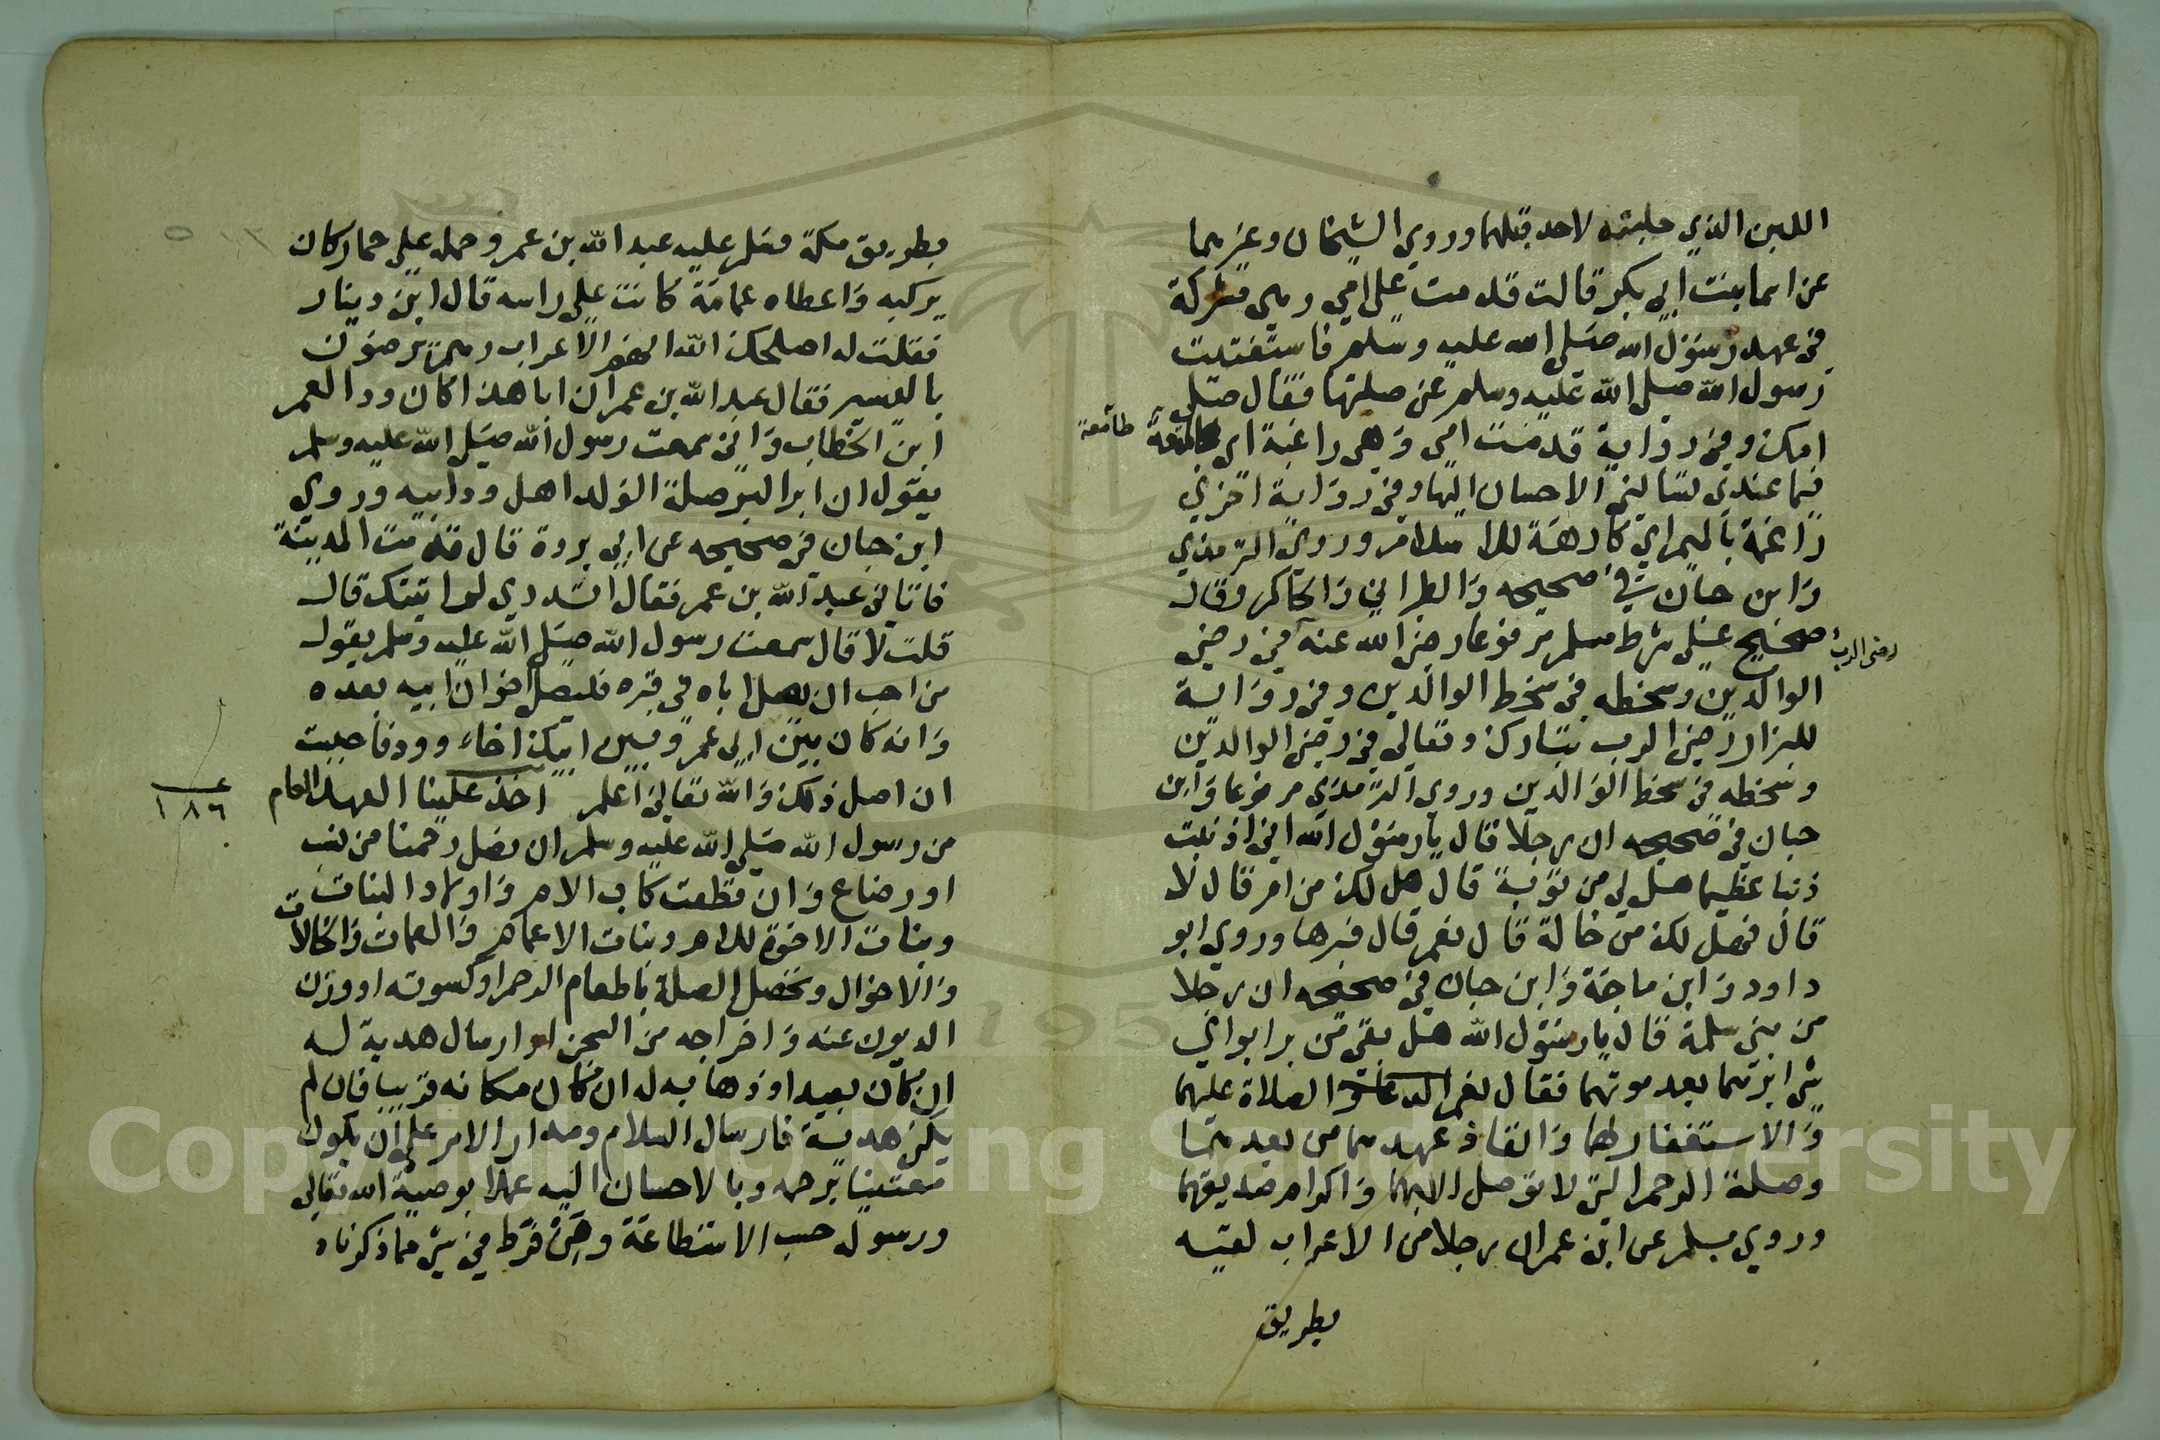 اللبن الذي حلبته لاحد قبلهما وروي الشيخان وغيرهما
عن اسما بنت ابي بكر قالت قدمت علي امي وهي مشركة
في عهد رسول الله صلي الله عليه وسلم فاستفتيت
رسول الله صلي الله عليه وسلم عن صلتها فقال صلي
امك وفي رواية قدمت امي وهي راغبة اي طامعة
طامعة
فيما عندي تسالني الاحسان اليها وفي رواية اخري
راغمة بالميم اي كارهة للاسلام وروي الترمذي
وابن حبان في صحيحه والطبراني والحاكم وقال
صحيح علي شرط مسلم مرفوعا رضي الله عنه في رضي
رضي الرب
الوالدين وسخطه في سخط الوالدين وفي رواية
للبزار رضي الرب تبارك وتعالي في رضي الوالدين
وسخطه في سخط الوالدين وروي الترمذي مرفوعا وابن
حبان في صحيحه ان رجلا قال يا رسول الله اني اذنبت
ذنبا عظيما هل لي من توبة قال هل لك من ام قال لا
قال فهل لك من خالة قال نعم قال فبرها وروي ابو
داود وابن ماجة وابن حبان في صحيحه ان رجلا
من بني سلمة قال يا رسول الله هل بقي من بر ابواي
شي ابرهما بعد موتهما فقال نعم الصلاة عليهما
والاستغفار لهما وانفاذ عهدهما من بعدهما
وصلة الرحم التي لا توصل الا بهما واكرام صديقهما
وروي مسلم عن ابن عمر ان رجلا من الاعراب لقيه
بطريق
بطريق مكة فسلم عليه عبد الله بن عمر وحمله علي حمار كان
يركبه واعطاه عمامة كانت علي راسه قال ابن دينار
فقلت له اصلحك الله انهم الاعراب وهم يرضون
باليسير فقال عبد الله بن عمر ان ابا هذا كان ودا لعمر
ابن الخطاب واني سمعت رسول الله صلي الله عليه وسلم
يقول ان ابر البر صلة الولد اهل ود ابيه وروي
ابن حبان في صحيحه عن ابي بردة قال قدمت المدينة
فاتاني عبد الله بن عمر فقال اتدري لم اتيتك قال
قلت لا قال سمعت رسول الله صلي الله عليه وسلم يقول
من احب ان يصل اباه في قبره فليصل اخوان ابيه بعده
وانه كان بين ابي عمر وبين ابيك اخاء وود فاحببت
ان اصل ذلك والله تعالي اعلم اخذ علينا العهد العام
١٨٦
من رسول الله صلي الله عليه وسلم ان نصل رحمنا من نسب
او رضاع وان قطعت كاب الام واولاد البنات
وبنات الاخوة للام وبنات الاعمام والعمات والخالات
والاخوال وتحصل الصلة باطعام الرحم او كسوته او وزن
الديون عنه واخراجه من السجن او ارسال هدية له
ان كان بعيد او ذهابه له ان كان مكانه قريبا فان لم
يكن هدية فارسال السلام ومدار الامر علي ان يكون
معتنيا برحمه وبالاحسان اليه عملا بوصية الله تعالي
ورسوله حسب الاستطاعة ومن فرط في شي مما ذكرناه
Copyright © King Saud University
1957